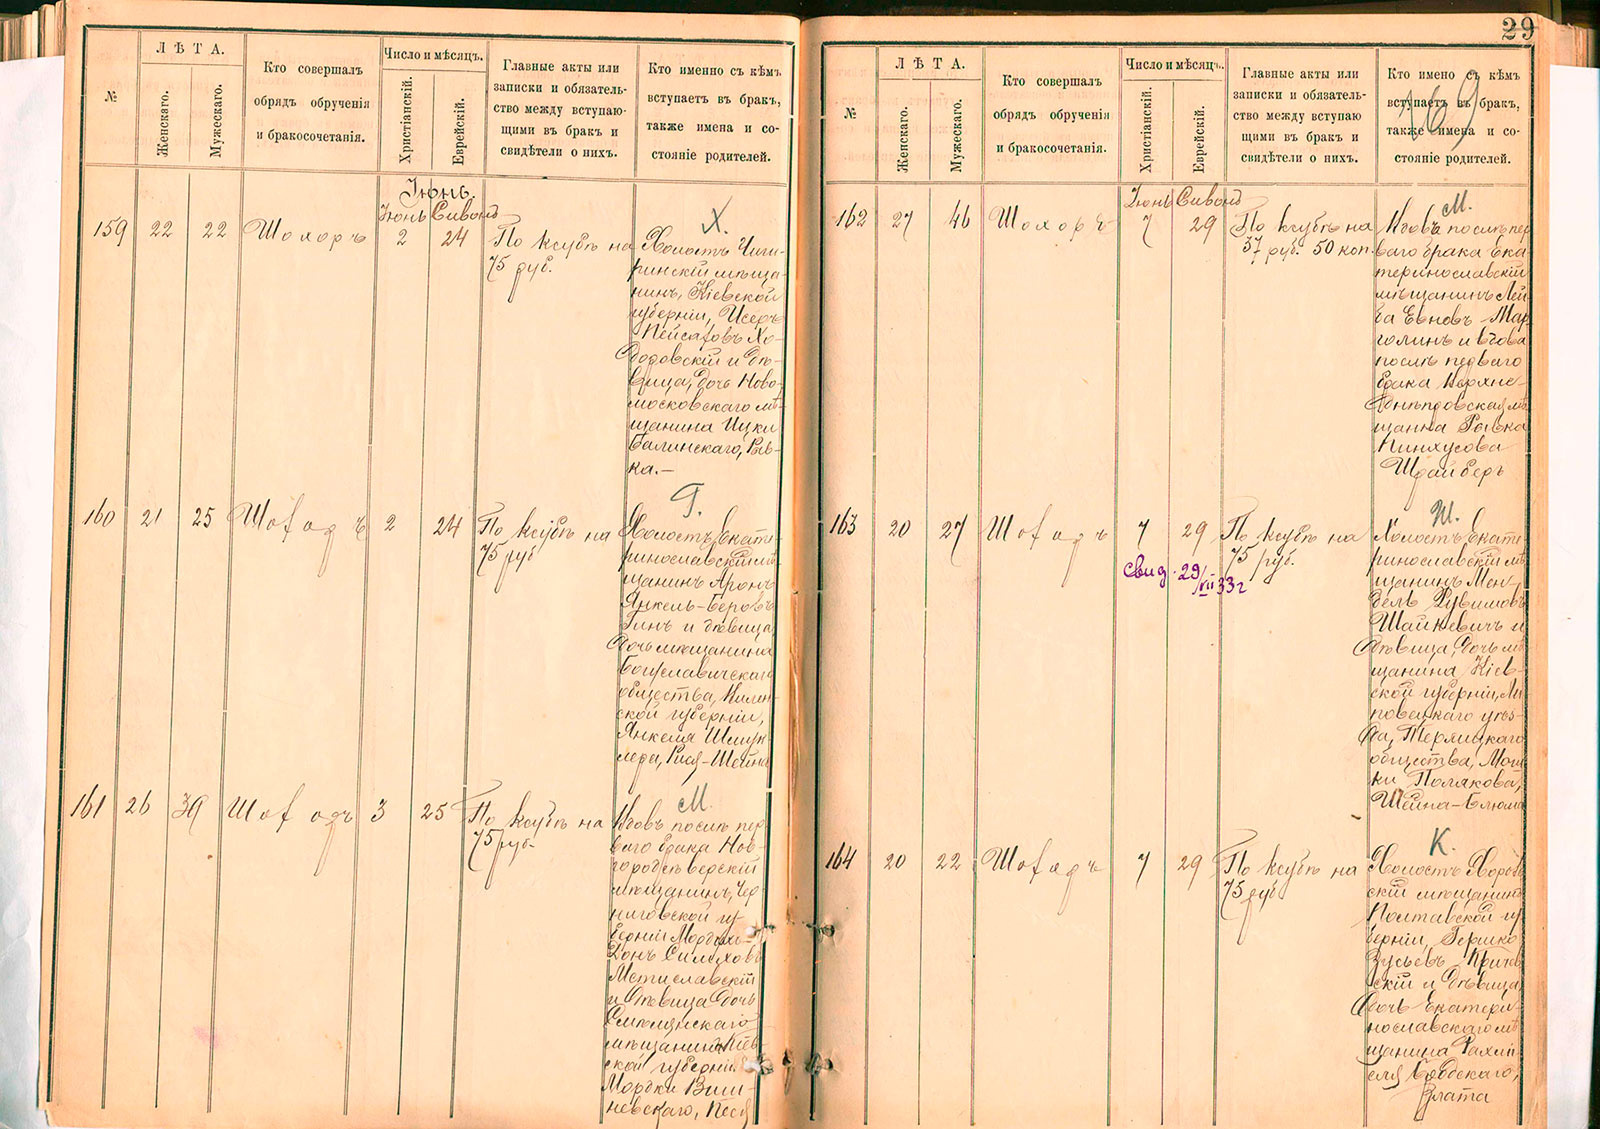 №
ЛѢТА.
Женскаго.
Мужескаго.
Кто совершалъ
обрядъ обрученія
и бракосочетанія.
Число и мѣсяцъ.
Христіанскій.
Еврейскій.
Главные акты или
записки и обязатель-
ство между вступаю-
щими въ бракъ и
свидѣтели о нихъ.
Кто именно съ кѣмъ
вступаетъ въ бракъ,
также имена и со-
стояніе родителей.
Іюнь
Іюнь Сивонъ
159 22 22 Шохоръ 2 24
По ксубѣ на
75 руб.
Х.
Холостъ Чиги-
ринскій мѣща-
нинъ, Кіевской
губерніи, Исеръ
Пейсаховъ Хо-
додовскій и дѣ-
вица, дочь Ново-
московскаго мѣ-
щанина Ицки
Балинскаго, Рыв-
ка.—
160 21 25 Шохоръ 2 24
По ксубѣ на
75 руб
Г.
Холостъ Екате-
ринославскій мѣ-
щанинъ Аронъ
Янкель-Беровъ
и дѣвица,
дочь мѣщанина
Богуславическаго
общества,
ской губерніи,
Янкеля
Рися-Шейна
161 26 39 Шохоръ 3 25
По ксубѣ на
75 руб.
М.
Вдовъ послѣ пер-
ваго брака Нов-
городсѣверскій
мѣщанинъ, Чер-
ниговской гу-
берніи Мордхи-
Мстиславскій
и дѣвица дочь
Смѣлянскаго
мѣщанина Кіев-
ской губерніи
Мордки Виш-
невскаго, Песя
29
169
№
ЛѢТА.
Женскаго.
Мужескаго.
Кто совершалъ
обрядъ обрученія
и бракосочетанія.
Число и мѣсяцъ.
Христіанскій.
Еврейскій.
Главные акты или
записки и обязатель-
ство между вступаю
щими въ бракъ и
свидѣтели о нихъ.
Кто имено съ кѣмъ
вступаетъ въ бракъ,
также имена и со-
стояніе родителей.
Іюнь Сивонъ
162 27 46 Шохоръ 7 29
По ксубѣ на
37 руб. 50 коп.
М.
Вдовъ послѣ пер
ваго брака Ека-
теринославскій
мѣщанинъ Лей-
ба Евновъ Мар-
голинъ и вдова
послѣ перваго
брака Верхне-
днѣпровская мѣ
щанка Рывка
Пинхусова
Шрайберъ
163 20 27 Шохоръ 7 29
свид. 29/VII 33 г
По ксубѣ на
75 руб.
Ш.
Холостъ Екате-
ринославскій мѣ
щанинъ Мен-
дель Рувимовъ
Шайкевичъ и
дѣвица, дочь мѣ
щанина Кіев-
ской губерніи, Ли
повецкаго уѣз-
да, Терлицкаго
общества, Мош-
ки Полякова,
Шейна-Блюма
164 20 22 Шохоръ 7 29
По ксубѣ на
75 руб
К.
Холостъ Хороль
скій мѣщанинъ
Полтавской гу
берніи, Гершко
Зусьевъ Кричев
скій и дѣвица
дочь Екатери-
нославскаго мѣ
щанина Рахми-
еля
Злата